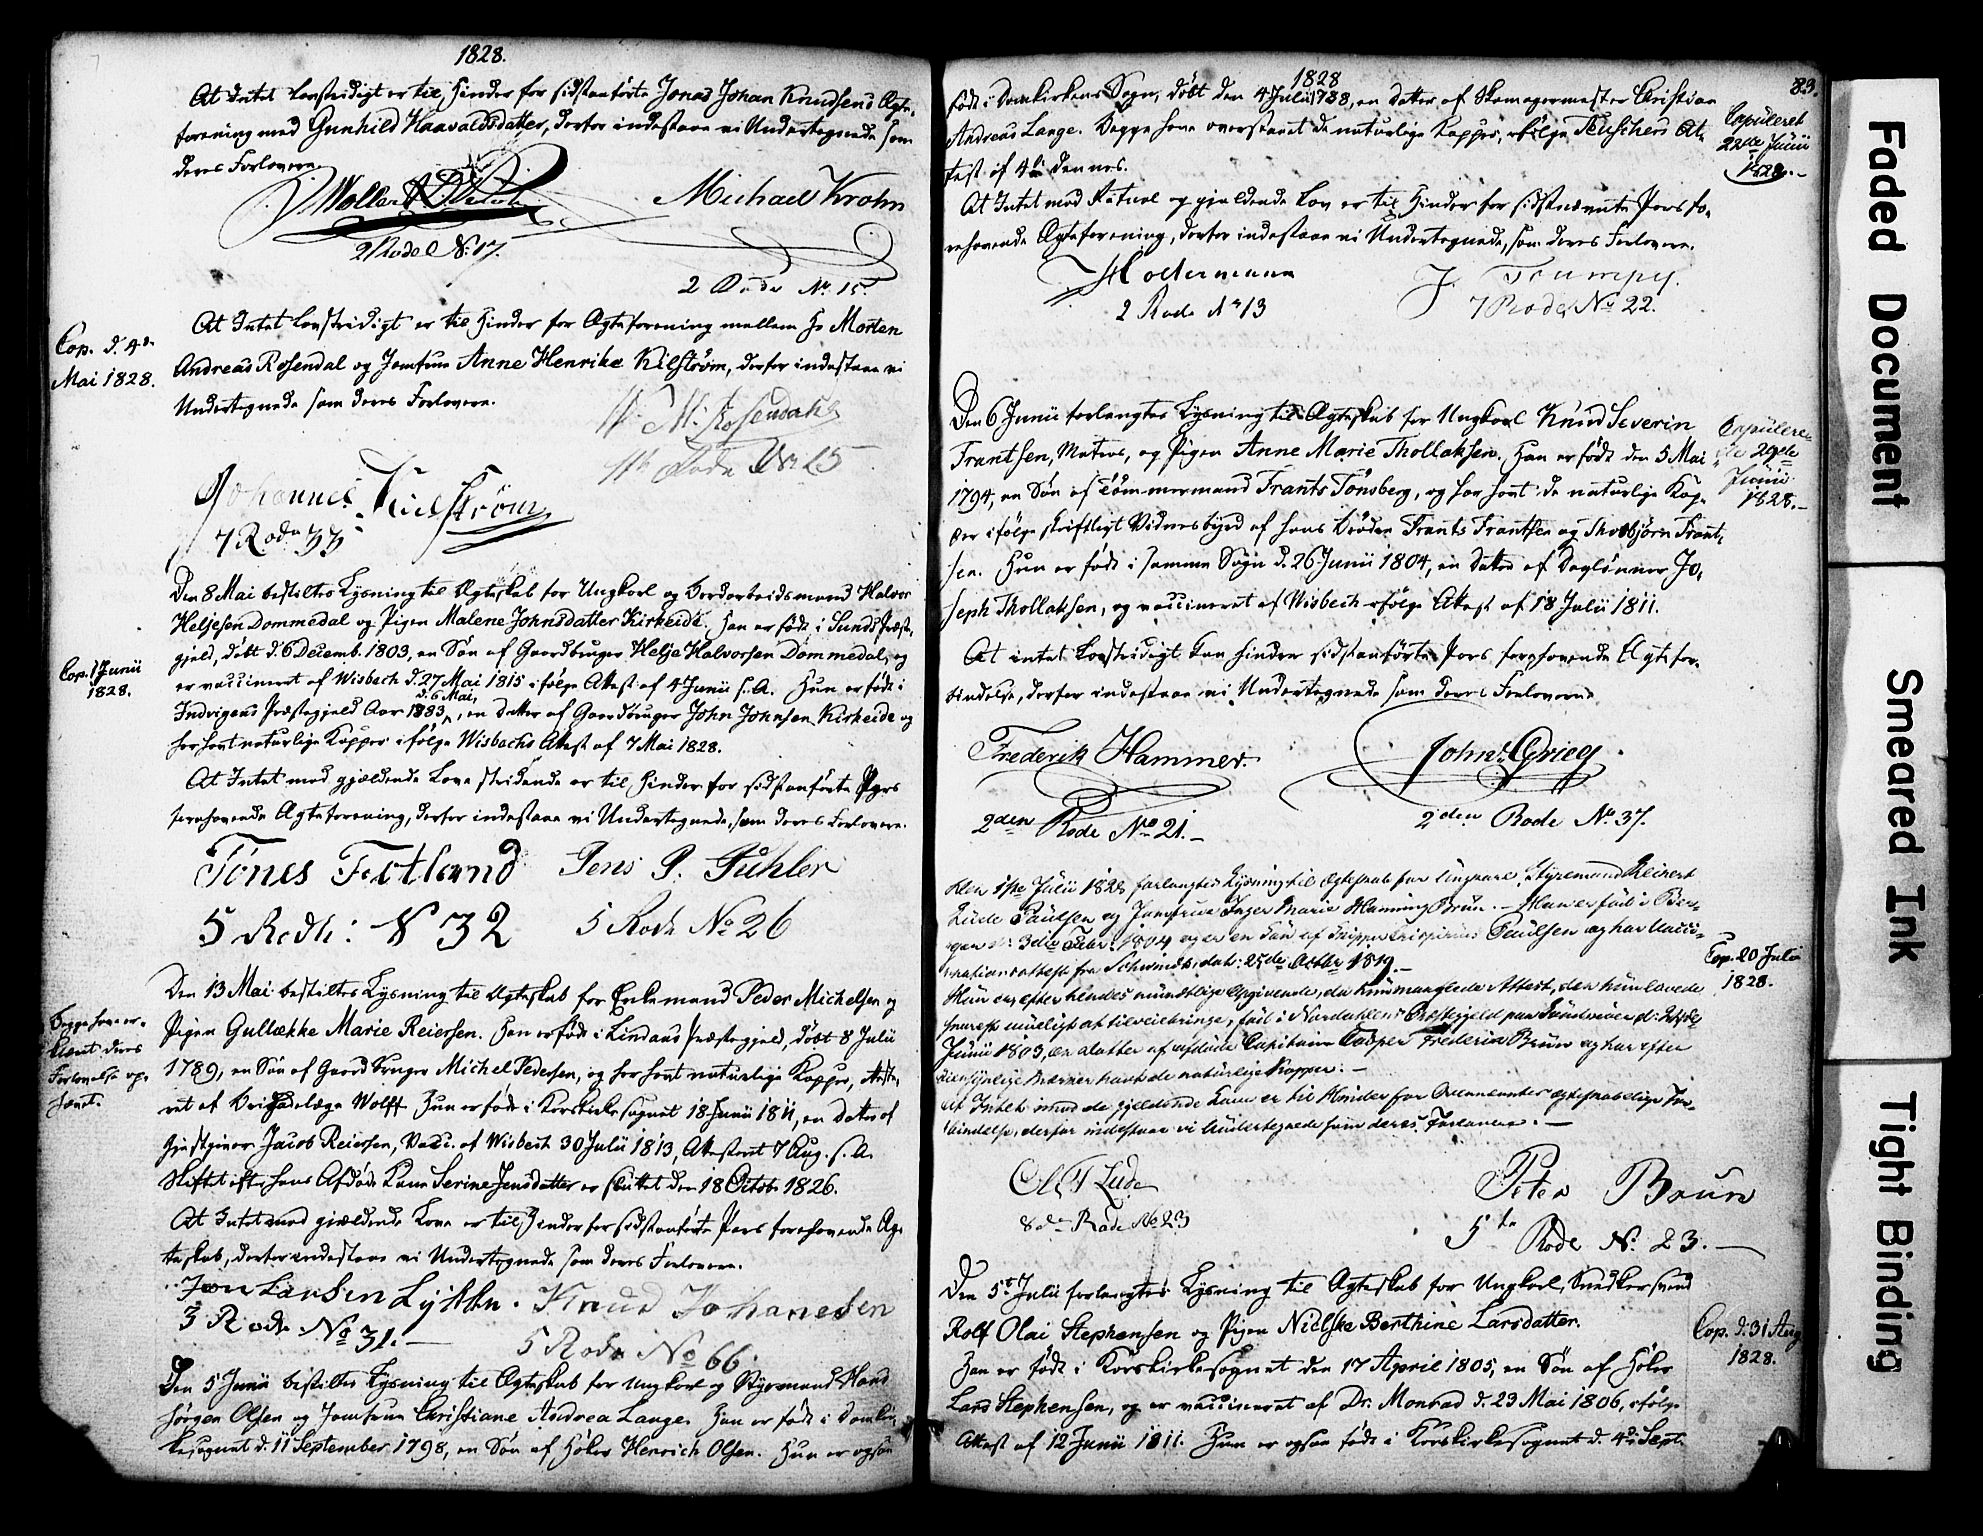 1828.
At Intet lovstridigt er til Hinder for sidstanførte Jonas Johan Knudsens Ægte-
forening med Gunhild Haavaldsdatter, derfor indestaae vi Undertegnede som
deres Forlovere.
Michael Krohn
2 Rode N: 17.
2 Rode No 15.
Cop. d. 4de
Mai 1828.
At Intet lovstridigt er til Hinder for Ægteforening mellem Hr Morten
Andreas Rosendal og Jomfrue Anne Henrike Kilstrøm, derfor indestaae vi
Undertegnede som deres Forlovere.
M: Rosendahl
Rode No 25
Johannes Kielstrøm
7 Rode 33
Den 8 Mai bestiltes Lysning til Ægteskab for Ungkarl og Bordarbeidsmand Halvor
Heljesen Dommedal og Pigen Malene Johnsdatter Kirkeide. Han er født i Sunds Præste-
gjeld, døbt d. 6 Decemb. 1803, en Søn af Gaardbruger Helje Halvorsen Dommedal, og
er vaccineret af Wisbech d. 27 Mai 1815 ifølge Attest af 4 Junii s. A. Hun er født i
Cop. 1 Junii
1828.
d. 6 Mai,
Indvigens Præstegjeld Aar 1803, en Datter af Gaardbruger John Johnsen Kirkeide og
har havt naturlige Kopper ifølge Wisbechs Attest af 7 Mai 1828.
At Intet mod gjældende Love stridende er til Hinder for sidstanførte Pars
forehavende Ægteforening, derfor indestaae vi Undertegnede, som deres Forlovere.
Tönes Fotland Jens P. Pühler
5 Rode: N 32 5 Rode No 26
Den 13 Mai bestiltes Lysning til Ægteskab for Enkemand Peder Michelsen og
Pigen Gullække Marie Reiersen. Han er født i Lindaas Præstegjeld, døbt 8 Julii
1789, en Søn af Gaardbruger Michel Pedersen, og har havt naturlige Kopper, Attste-
ret af Brigadelæge Wolff. Hun er født i Korskirkesognet 18 Junii 1811, en Datter af
Gjestgiver Jacob Reiersen, Vacc. af Wisbech 30 Julii 1813, Attesteret 7 Aug. s. A.
Skiftet efter hans Afdøde Kone Serine Jensdatter er sluttet den 18 Octobr 1826.
Begge have er-
klæret deres
Forlovelse op-
hævet.
At Intet mod gjældende Love er til Hinder for sidstanførte Pars forehavende Æg-
teskab, derfor indestaae vi Undertegnede som deres Forlovere.
Larsen Knud Johanesen
3 Rode No 31. 5 Rode No 66.
Den 5 Junii bestiltes Lysning til Ægteskab for Ungkarl og Styrmand Hans
Jørgen Olsen og Jomfrue Christiane Andrea Lange. Han er født i Domkir-
kesognet d. 11 September 1798, en Søn af Høker Henrich Olsen. Hun er ogsaa
1828
83.
født i Domkirkens Sogn, døbt den 4 Julii 1788, en Datter af Skomagermester Christian
Andreas Lange. Begge have overstaaet de naturlige Kopper, ifølge Büschers At-
test af 4de dennes.
Copuleret
22de Junii
1828.-
At Intet mod Ritual og gjældende Lov er til Hinder for sidstnævnte Pars fo-
rehavende Ægteforening, derfor indestaae vi Undertegnede, som deres Forlovere.
Holtermann J. Trumpy.
2 Rode No 13 7 Rode No 22.
Den 6 Junii forlangtes Lysning til Ægteskab for Ungkarl Knud Severin
Frantsen, Matros, og Pigen Anne Marie Thollaksen. Han er født den 5 Mai
1794, en Søn af Tømmermand Frants Tønsberg, og har havt de naturlige Kop-
per ifølge skriftligt Vidnesbyrd af hans Brødre Frants Frantsen og Thorbjørn Frant-
sen. Hun er født i samme Sogn d. 26 Junii 1804, en Datter af Daglønner Jo-
seph Thollaksen, og vaccineret af Wisbech ifølge Attest af 18 Julii 1811.
Copuleret
29de
Junii
1828.-
At intet Lovstridigt kan hindre sidstanførte Pars forehavende Ægtefor-
bindelse, derfor indestaae vi Undertegnede som deres Forlovere.
Frederik Hammer. John Grieg
2den Rode No 21.- 2den Rode No 37.
Den 1ste Julii 1828 forlangtes Lysning til Ægteskab for Ungkarl, Styrmand Reinert
Lude Paulsen og Jomfrue Inger Marie Hanning Brun. - Han er født i Ber-
gen d: 3die Febr: 1804 og er en Søn af Skipper Crispinus Paulsen og har Vacci-
nationsattest fra Schwindt, dat: 25de Octbr 1819.-
Hun er, efter hendes mundtlige Opgivende, da hun manglede Attest, den hun lovede
snarest mueligt at tilveiebringe, født i Nordahlens Præstegjeld paa Sandnæes d:
Junii 1803, en datter af afdøde Capitain Casper Frederik Brun og har efter
siensynlige Mærker havt de naturlige Kopper. -
Cop. 20 Julii
1828.
At Intet imod de gjeldende Love er til Hinder for Ovennævntes ægteskabelige For-
bindelse, derfor indestaae vi Undertegnede som deres Forlovere. -
Lude Peter Brun
8de Rode No 23 5te Rode N: 23. -
Den 5te Julii forlangtes Lysning til Ægteskab for Ungkarl, Snedkersvend
Rolf Olai Stephensen og Pigen Nielske Berthine Larsdatter.
Han er født i Korskirkesognet den 17 April 1805, en Søn af Høker
Lars Stephensen, og er vaccineret af Dr. Monrad d. 23 Mai 1806, ifølge
Attest af 12 Junii 1811. Hun er ogsaa født i Korskirkesognet d. 4de Sept.
Cop. d. 31 Aug
1828.
Faded Document
Smeared Ink
Tight Binding